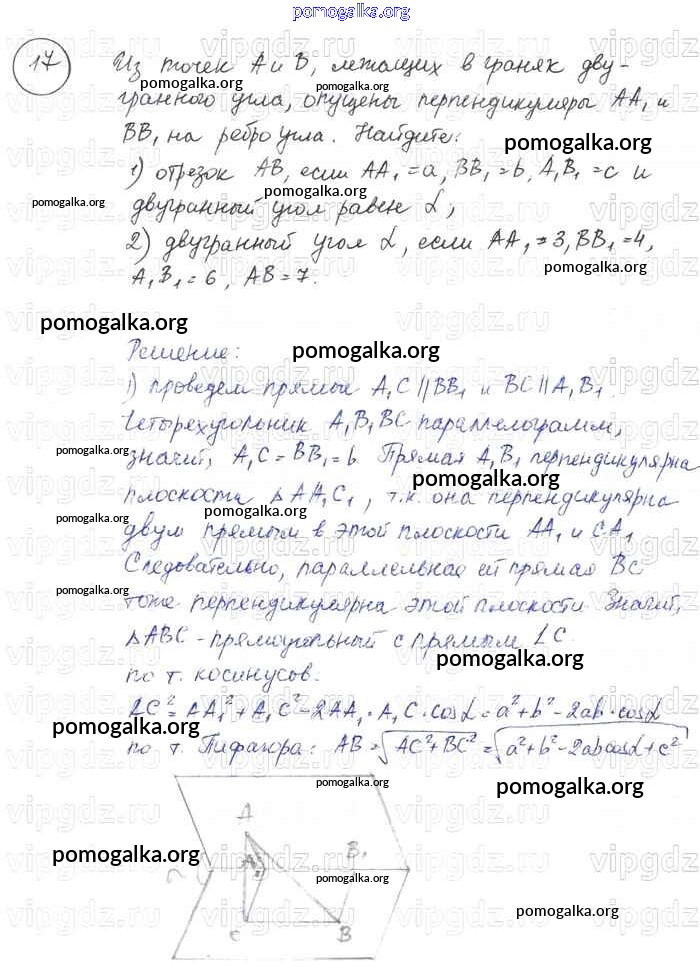 pomogalka.org
17 Из точек A и B, лежащих в гранях дву-
гранного угла, опущены перпендикуляры AA₁ и
BB₁ на ребро угла. Найдите:
1) отрезок AB, если AA₁=a, BB₁=b, A₁B₁=c и
двугранный угол равен α;
2) двугранный угол α, если AA₁=3, BB₁=4,
A₁B₁=6, AB=7.
Решение:
1) проведем прямые A₁C∥BB₁ и BC∥A₁B₁.
Четырехугольник A₁B₁BC-параллелограмм,
значит, A₁C=BB₁=b. Прямая A₁B₁ перпендикулярна
плоскости △AA₁C₁, т.к. она перпендикулярна
двум прямым в этой плоскости AA₁ и CA₁
Следовательно, параллельная ей прямая BC
тоже перпендикулярна этой плоскости. Значит,
△ABC-прямоугольный с прямым ∠C.
по т. косинусов.
AC²=AA₁²+A₁C²-2AA₁·A₁C·cosα=a²+b²-2ab·cosα
по т. Пифагора: AB=√AC²+BC²=√a²+b²-2abcosα+c²
A
A₁ B₁
C B